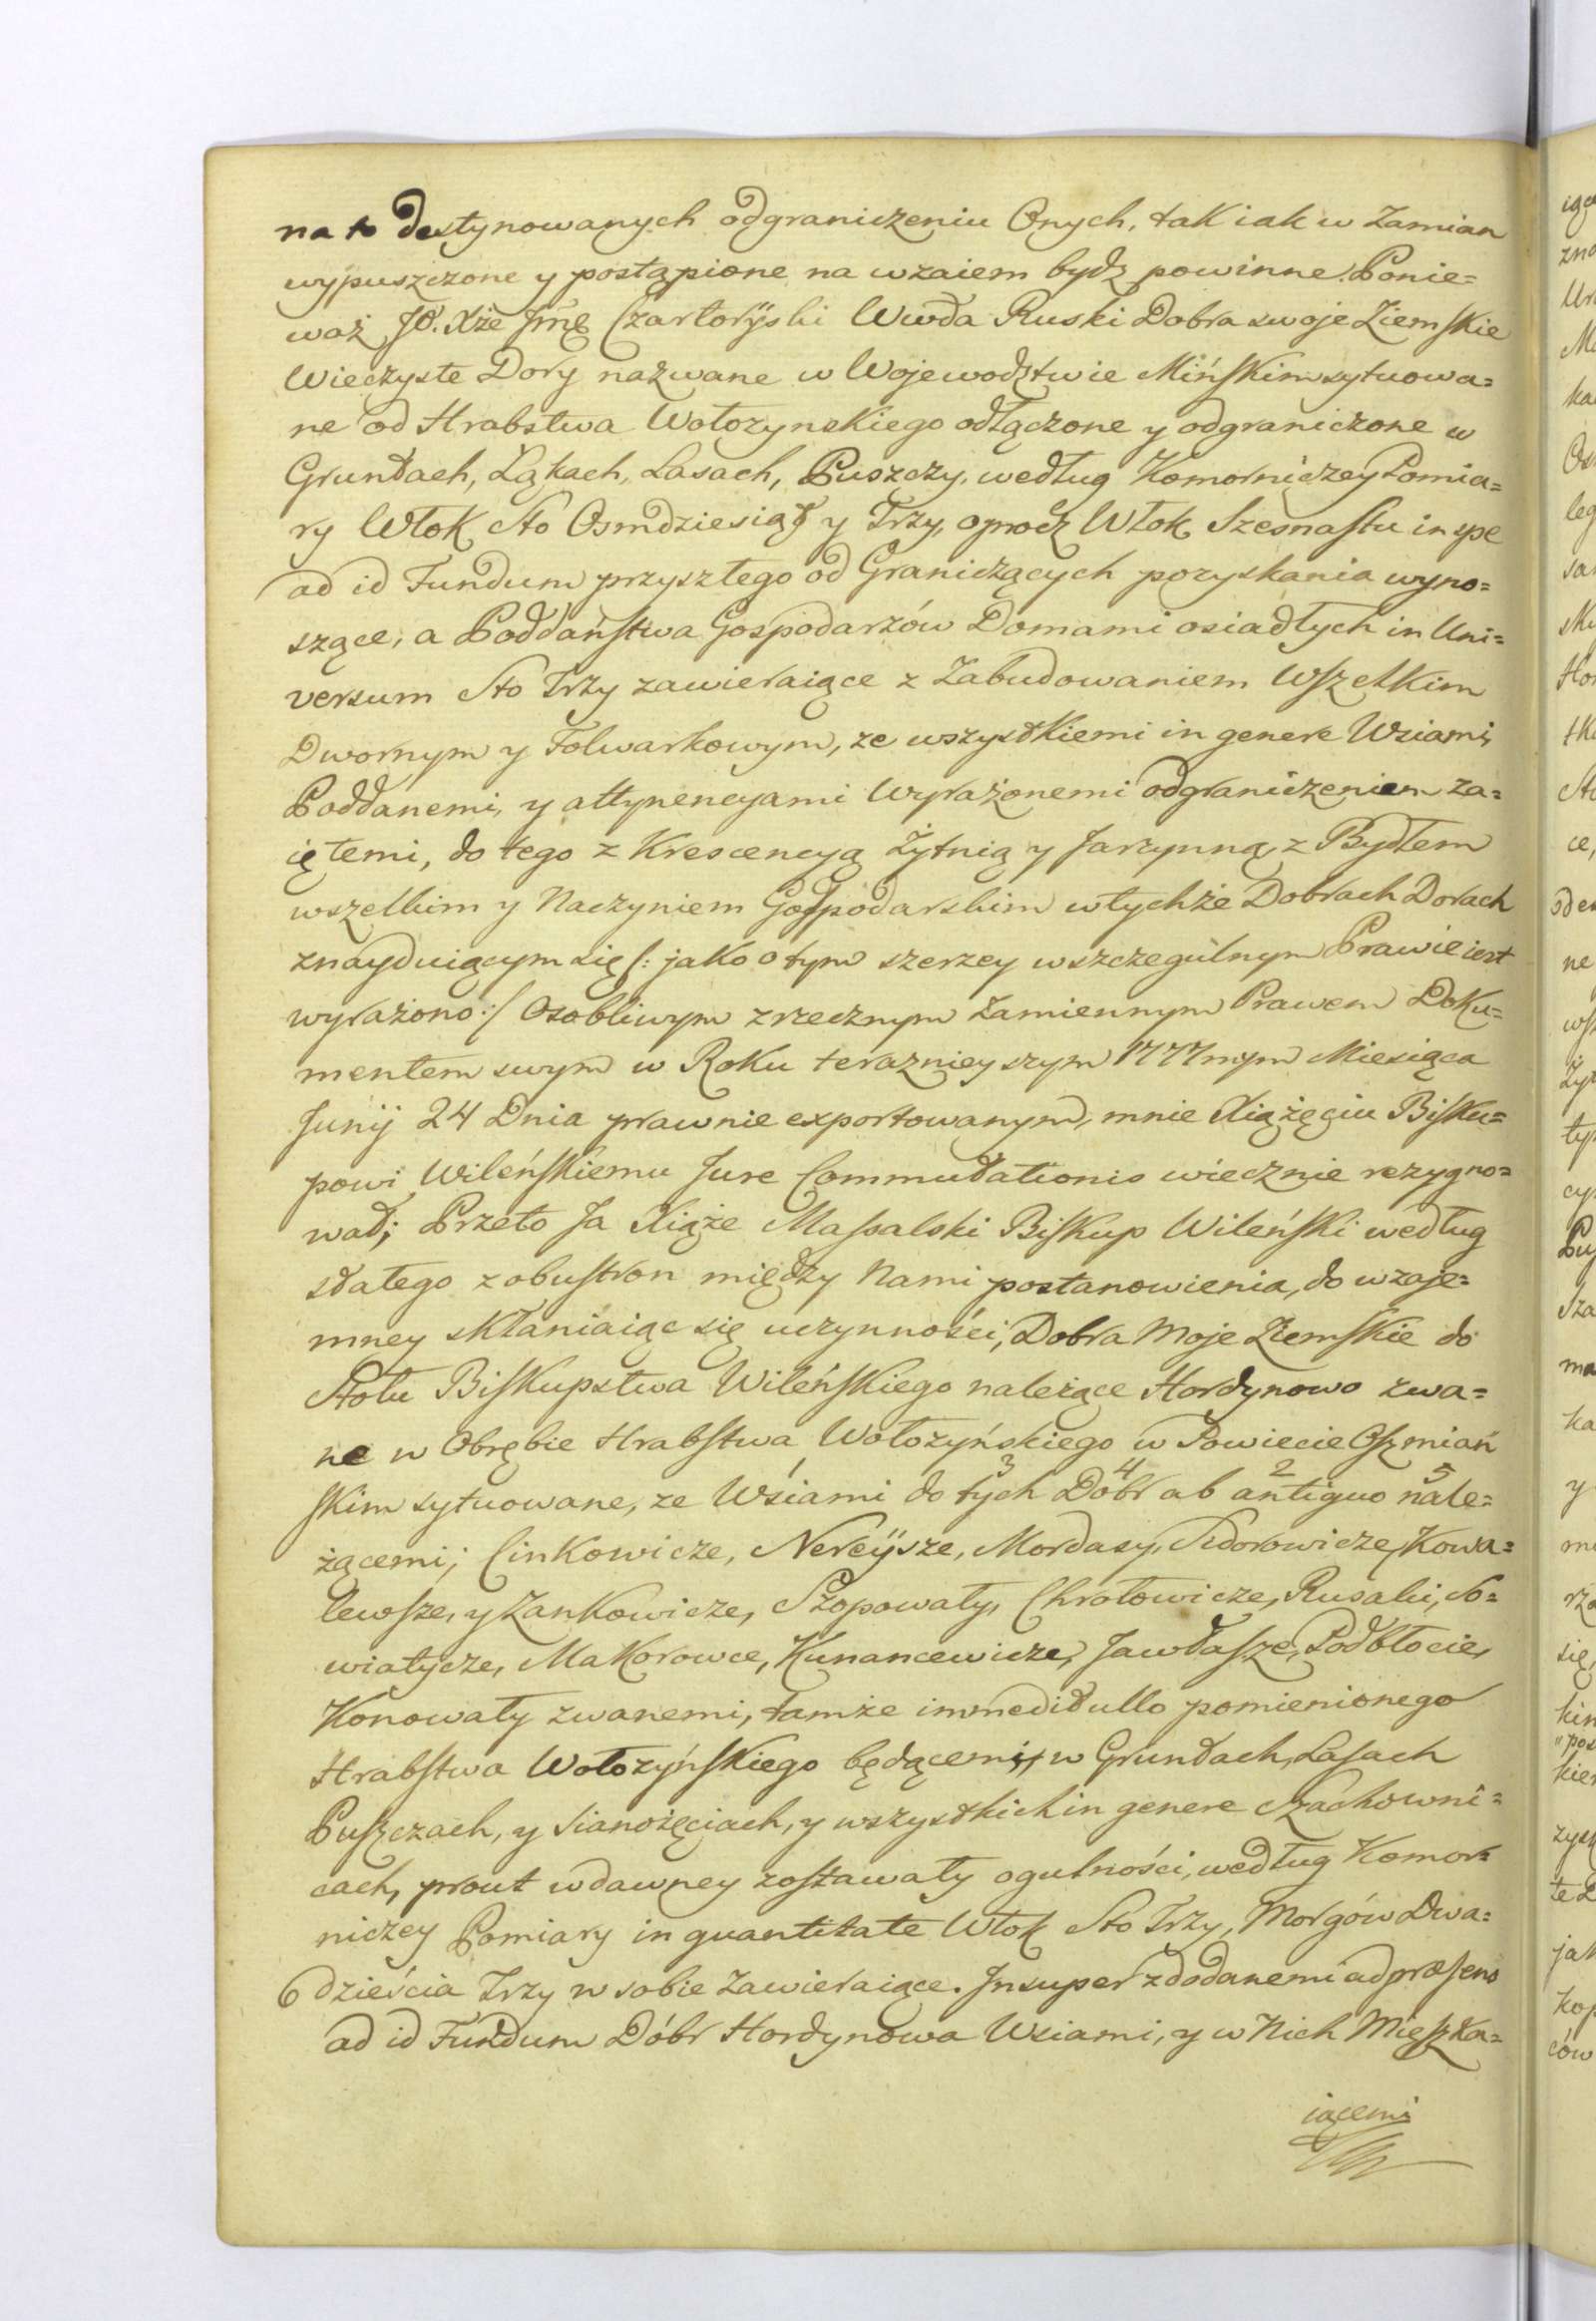 na to destynowanych odgraniczeniu Onych, tak iak w Zamian
wypuszczone y postąpione na wzaiem bydz powinne. Ponie=
waż JO. Xże Jmę Czartoryski Wwda Ruski Dobra swoje Ziemskie
Wieczyste Dory nazwane w Wojewodztwie Mińskim sytuowa=
ne od Hrabstwa Wołozynskiego odłączone y odgraniczone w
Gruntach, Łąkach, Lasach, Puszczy, według Komorniczey Pomia=
ry Włok Sto Osmdziesiąt y Trzy, oprocz Włok Szesnastu in spe
ad id Fundum przyszłego od Graniczących pozyskania wyno=
szące, a Poddaństwa Gospodarzów Domami osiadłych in Uni=
versum Sto Trzy zawieraiące z Zabudowaniem Wszelkim
Dwornym y Folwarkowym, ze wszystkiemi in genere Wsiami,
Poddanemi, y attynencyami Wyrażonemi odgraniczeniem za=
iętemi, do tego z Krescencyą Żytnią y Jarzynną, z Bydłem
wszelkim y Naczyniem Gospodarskim w tychże Dobrach Dorach
znayduiącym się /: jako o tym szerzey w szczegulnym Prawie iest
wyrażono :/ Osobliwym zrzecznym Zamiennym Prawem Doku=
mentem swym w Roku terazniey szym 1777mym Miesiąca
Junij 24 Dnia prawnie exportowanym, mnie Xiążęciu Bisku=
powi Wileńskiemu Jure Commutationis wiecznie rezygno=
wał; Przeto Ja Xiąże Massalski Biskup Wileński według
stałego z obustron między Nami postanowienia, do wzaje=
mney skłaniaiąc się uczynności, Dobra Moje Ziemskie do
Stołu Biskupstwa Wileńskiego należące Hordynowo zwa=
ne w Obrębie Hrabstwa Wołozyńskiego w Powiecie Oszmiań
skim sytuowane, ze Wsiami do tych Dobr ab antiquo nale=
1 3 4 2 5
żącemi; Cinkowicze, Nereysze, Mordasy, Sidorowicze, Kowa=
lewsze, y Zankowicze, Szopowały, Chrołowicze, Rusaki, So=
wiatycze, Makorowce, Kunancewicze, Jawtasze, Podbłocie,
Konowały zwanemi, tamże immeditullo pomienionego
Hrabstwa Wołozyńskiego będącemi, w Gruntach, Lasach
Puszczach, y Sianożęciach, y wszystkich in genere Szachowni=
cach, prout w dawney zostawały ogulności, według Komor=
niczey Pomiary in quantitate Włok Sto Trzy, Morgów Dwa=
dzieścia Trzy w sobie Zawieraiące. Insuper z dodanemi ad præsens
ad id Fundum Dóbr Hordynowa Wsiami, y w Nich Mieszka=
iącemi